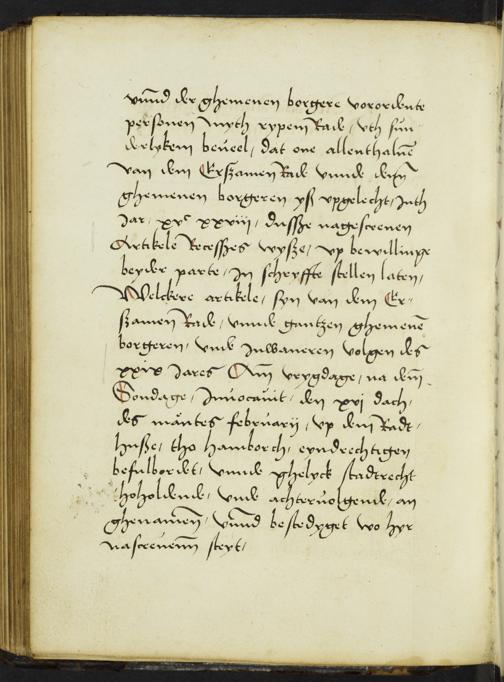 vnnd der ghemenen borgere vorordente
personen myth rypem Rade, vth sun
derlykem beueel, dat one allenthaluē
van dem Erszamen Rade vnnde dem
ghemenen borgeren ysz vpgelecht, Inth
Jar, xvᶜ xxviii, dussze nagescreuen
Artikele Recesszes wysze, vp bewillinge
beyder parte, In schryffte stellen laten,
Welckere artikele, syn van dem Er-
szamen Rade, vnnde gantzen ghemenē
borgeren, vnde Inwaneren volgen des
xxix Jares Am vrygdage, na dem
Sondage, Inuocauit, den xvj dach,
des mantes february, vp dem Radt-
husze, tho hamborch, eyndrechtigen
befulbordet, vnnde ghelyck stadtrecht
thoholdende, vnde achteruolgende, an
ghenamen, vnnd bestedyget wo hyr
nascreuenn steyt,